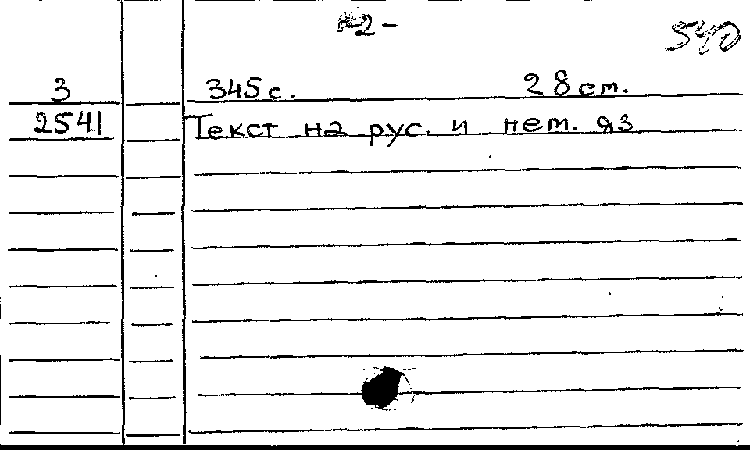 -2-
540
3 345 с. 28 cm.
2541 Текст на рус. и нем. яз